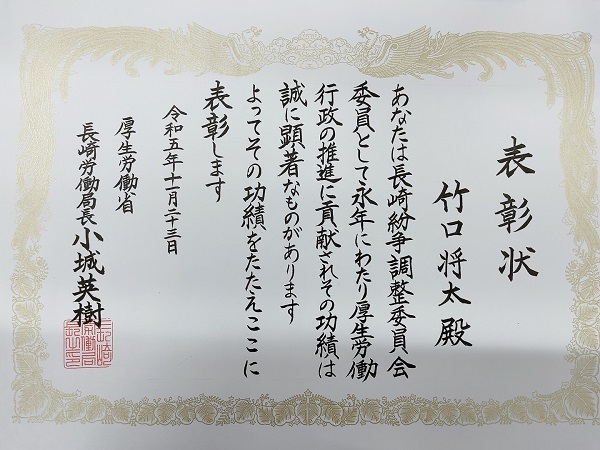 表彰状
竹口将太殿
あなたは長崎紛争調整委員会
委員として永年にわたり厚生労働
行政の推進に貢献されその功績は
誠に顕著なものがあります
よってその功績をたたえここに
表彰します
令和五年十一月二十三日
厚生労働省
長崎労働局長 小城英樹
長崎
労働局
長之印